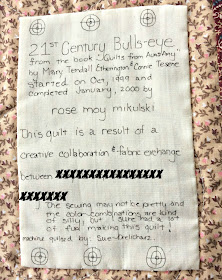 21st Century Bulls-eye
from the book: "Quilts from Aunt Amy"
by Mary Tendall Etherington & Connie Tesene
started on Oct, 1999 and
completed January, 2000 by
rose moy mikulski
This quilt is a result of a
creative collaboration & fabric exchange
between
The sewing may not be pretty and
the color combinations are kind
of silly, but I sure had a lot
of fun making this quilt!
machine quilted by: Sue